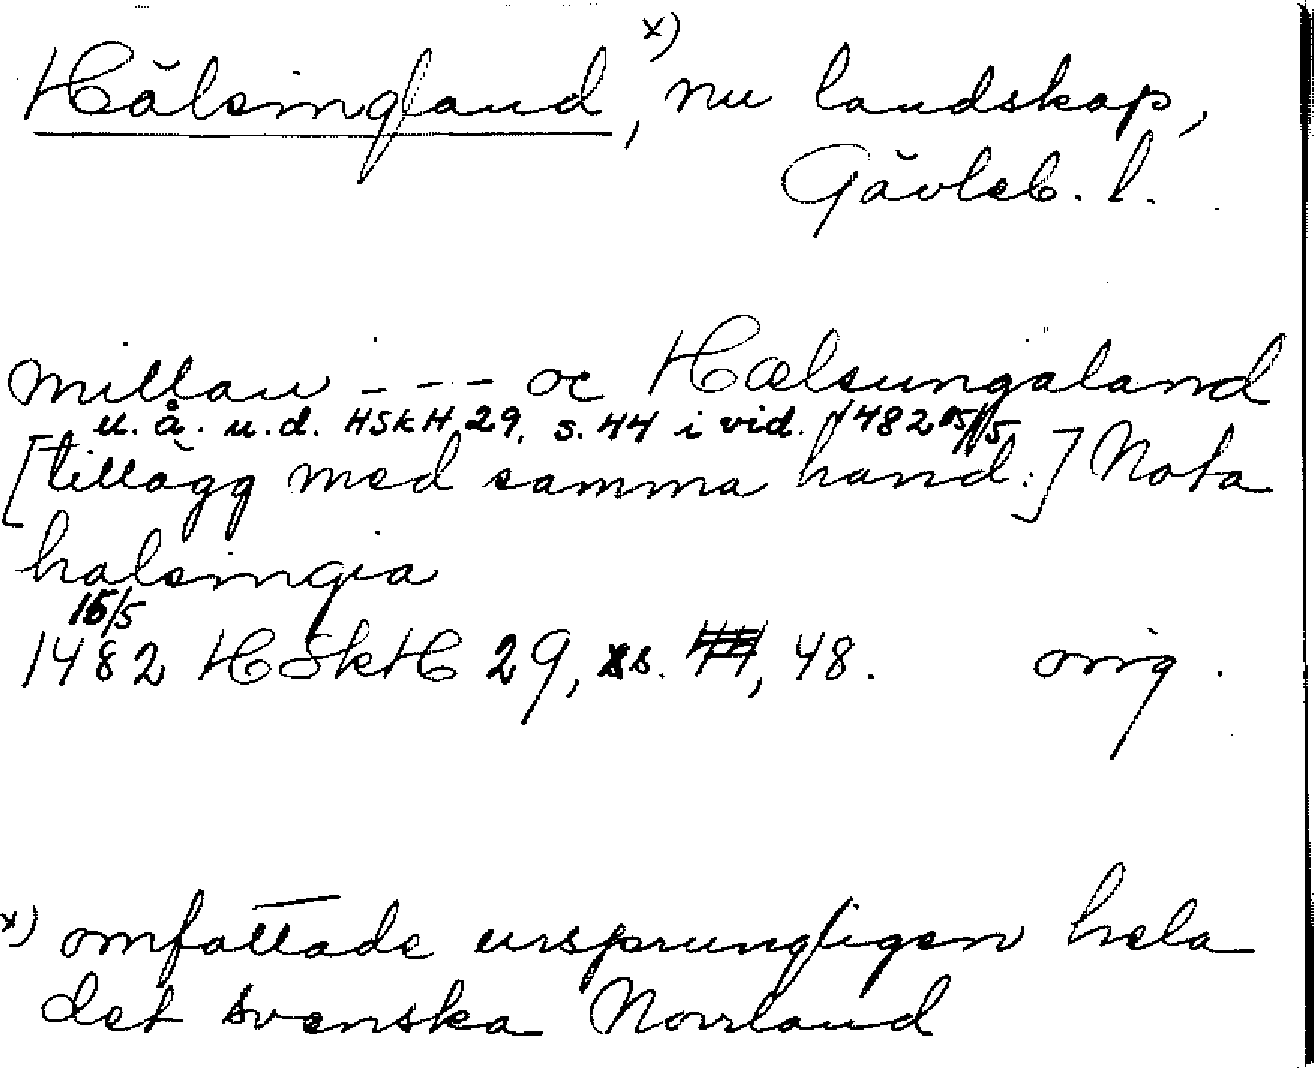 Hälsingland, x) nu landskap,
Gävleb. l.
millan - - - oc Hælsungaland
u. å. u. d. HSkH 29, s. 44 i vid. 1482 15/5
[tillägg med samma hand:] Nota
halsingia
15/5
1482 HSkH 29, s. 48. orig.
x) omfattade ursprungligen hela
det svenska Norrland